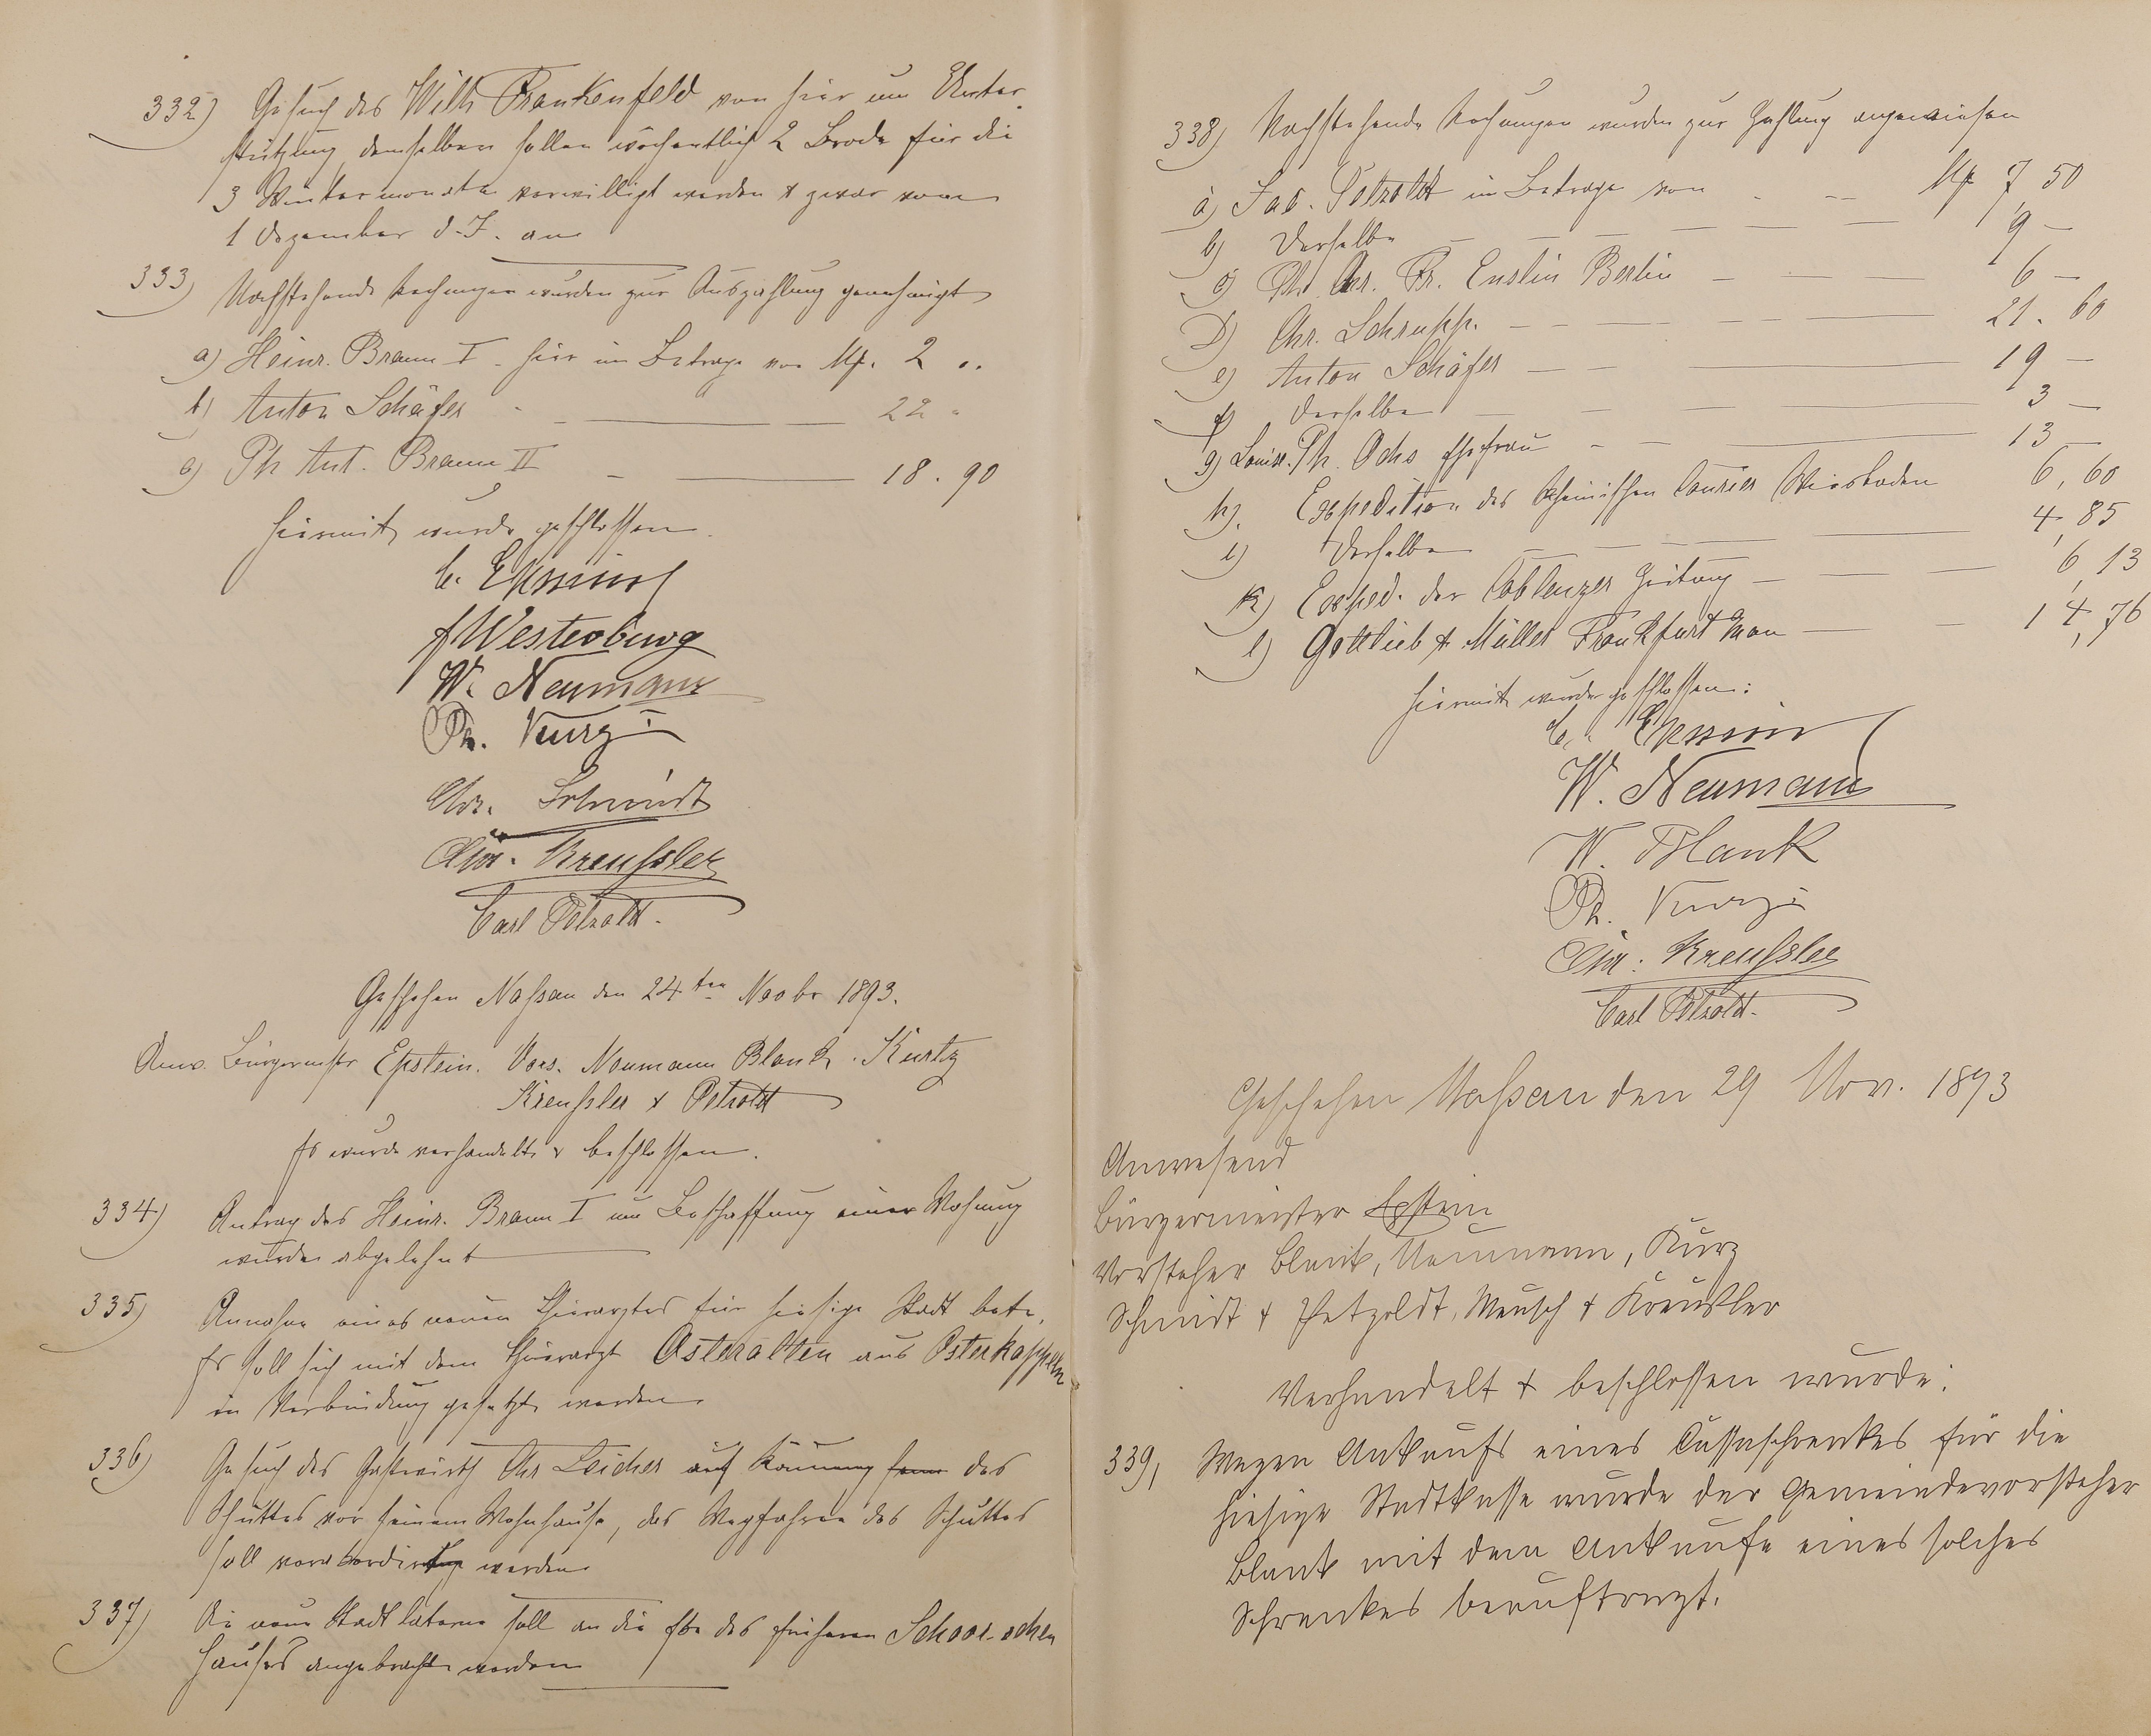 332) Gesuch des Wilh Frankenfeld von hier um Unter-
stützung, demselben sollen wöchentlich 2 Brode für die
3 Wintermonate verwilligt werden & zwar vom
1 Dezember d. J. an
333) Nachstehende Rechnungen wurden zur Auszahlung genehmigt
a) Heinr. Braun I. hier im Betrage von Mk. 2 „
b) Anton Schäfer - — 22 „
c) Ph Ant. Braun II - — 18. 90
hiermit wurde geschlossen.
C. Epstein
Westerburg
W. Neumann
Ph. Kurz
Chr. Schmidt
Chr. Kreussler
Carl Petzoldt.
Geschehen Nassau den 24ten Novbr 1893.
Anw. Bürgermstr Epstein. Vors. Neumann Blank. Kurtz
Kreussler & Petzoldt
Es wurde verhandelt & beschlossen.
334) Antrag des Heinr. Braun I um Beschaffung einer Wohnung
wurde abgelehnt
335) Annahme eines neuen Thierarztes für hiesige Stadt betr.
Es soll sich mit dem Thierarzt Osteralten aus Osterkappeln
in Verbindung gesetzt werden
336) Gesuch des Gastwirth Chr Leicher auf Räumung des
Schuttes vor seinem Wohnhause, das Wegfahren des Schuttes
soll werden
337) Die neue Stadtlaterne soll an die Ecke des früheren
Hauses angebracht werden
338) Nachstehende Rechnungen wurden zur Zahlung angewiesen
a) Jac. Petzoldt im Betrage von - -- Mk 7, 50
b) Derselbe — — — 9 —
c) Chr. Fr. Enslin Berlin — — 6 —
d) Chr. Schrupp. — — — 21. 60
e) Anton Schäfer — — — 19 —
f) Derselbe — — — 3 —
g) Louise. Ph. Ochs Ehefrau - — — 13 —
h). Expedition des Rheinischen Courier Wiesbaden 6, 60
i) Derselbe — — — 4, 85
k) Exped. der Coblenzer Zeitung — — — 6, 13
l) Gottlieb & Müller Frankfurt a Main — — 14, 76
hiermit wurde geschlossen:
C. Epstein
W. Neumann
W. Blank
Ph. Kurz
Chr: Kreussler
Carl Petzoldt.
Geschehen Nassau den 29 Nov. 1893
Anwesend
Bürgermeister Epstein
Vorsteher Blank, Neumann, Kurz
Schmidt & Petzoldt, Meusch & Kreussler
Verhandelt & beschlossen wurde:
339, Wegen Ankaufs eines Cassaschrankes für die
hiesige Stadtkasse wurde der Gemeindevorsteher
Blank mit dem Ankaufe eines solches
Schrankes beauftragt.